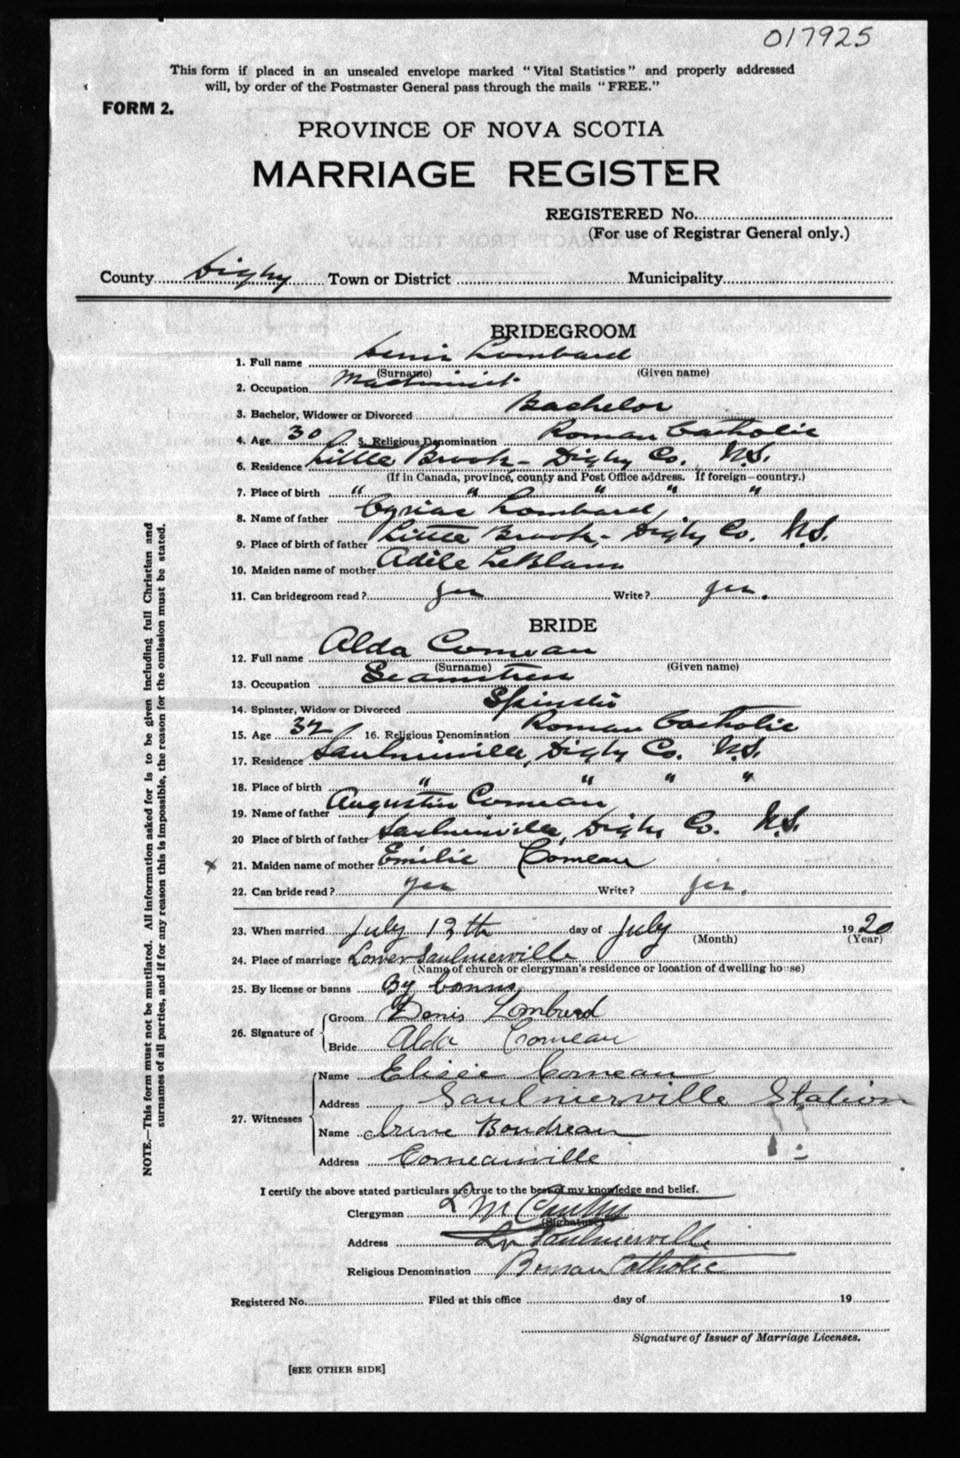 017925
This form if placed in an unsealed envelope marked "Vital Statistics" and properly addressed
will, by order of the Postmaster General pass through the mails "FREE."
FORM 2.
PROVINCE OF NOVA SCOTIA
MARRIAGE REGISTER
REGISTERED No.
(For use of Registrar General only.)
County Digby Town or District Municipality
BRIDEGROOM
1. Full name Denis Lombard
(Surname) (Given name)
2. Occupation Machinist
3. Bachelor, Widower or Divorced Bachelor
4. Age 30 5. Religious Denomination Roman Catholic
6. Residence Little Brook - Digby Co. N.S.
(If in Canada, province, county and Post Office address. If foreign—country.)
7. Place of birth " " " " "
8. Name of father Cyriac Lombard
9. Place of birth of father Little Brook, Digby Co. N.S.
10. Maiden name of mother Adèle LeBlanc
11. Can bridegroom read? yes Write? yes.
BRIDE
12. Full name Alda Comeau
(Surname) (Given name)
13. Occupation Seamstress
14. Spinster, Widow or Divorced Spinster
15. Age 32 16. Religious Denomination Roman Catholic
17. Residence Saulnierville, Digby Co. N.S.
18. Place of birth " " " "
19. Name of father Augustin Comeau,
20 Place of birth of father Saulnierville, Digby Co. N.S.
x 21. Maiden name of mother Emilie Comeau
22. Can bride read? yes Write? yes.
23. When married July 12th day of July 1920
(Month) (Year)
24. Place of marriage Lower Saulnierville
(Name of church or clergyman's residence or location of dwelling house)
25. By license or banns By banns
26. Signature of Groom Denis Lombard
Bride Alda Comeau
27. Witnesses
Name Elisée Comeau
Address Saulnierville Station
Name Irene Boudreau
Address Comeauville
I certify the above stated particulars are true to the best of my knowledge and belief.
Clergyman
(Signature)
Address Lr Saulnierville
Religious Denomination Roman Catholic
Registered No. Filed at this office day of 19
Signature of Issuer of Marriage Licenses.
[SEE OTHER SIDE]
NOTE.—This form must not be mutilated. All information asked for is to be given including full Christian and
surnames of all parties, and if for any reason this is impossible, the reason for the omission must be stated.